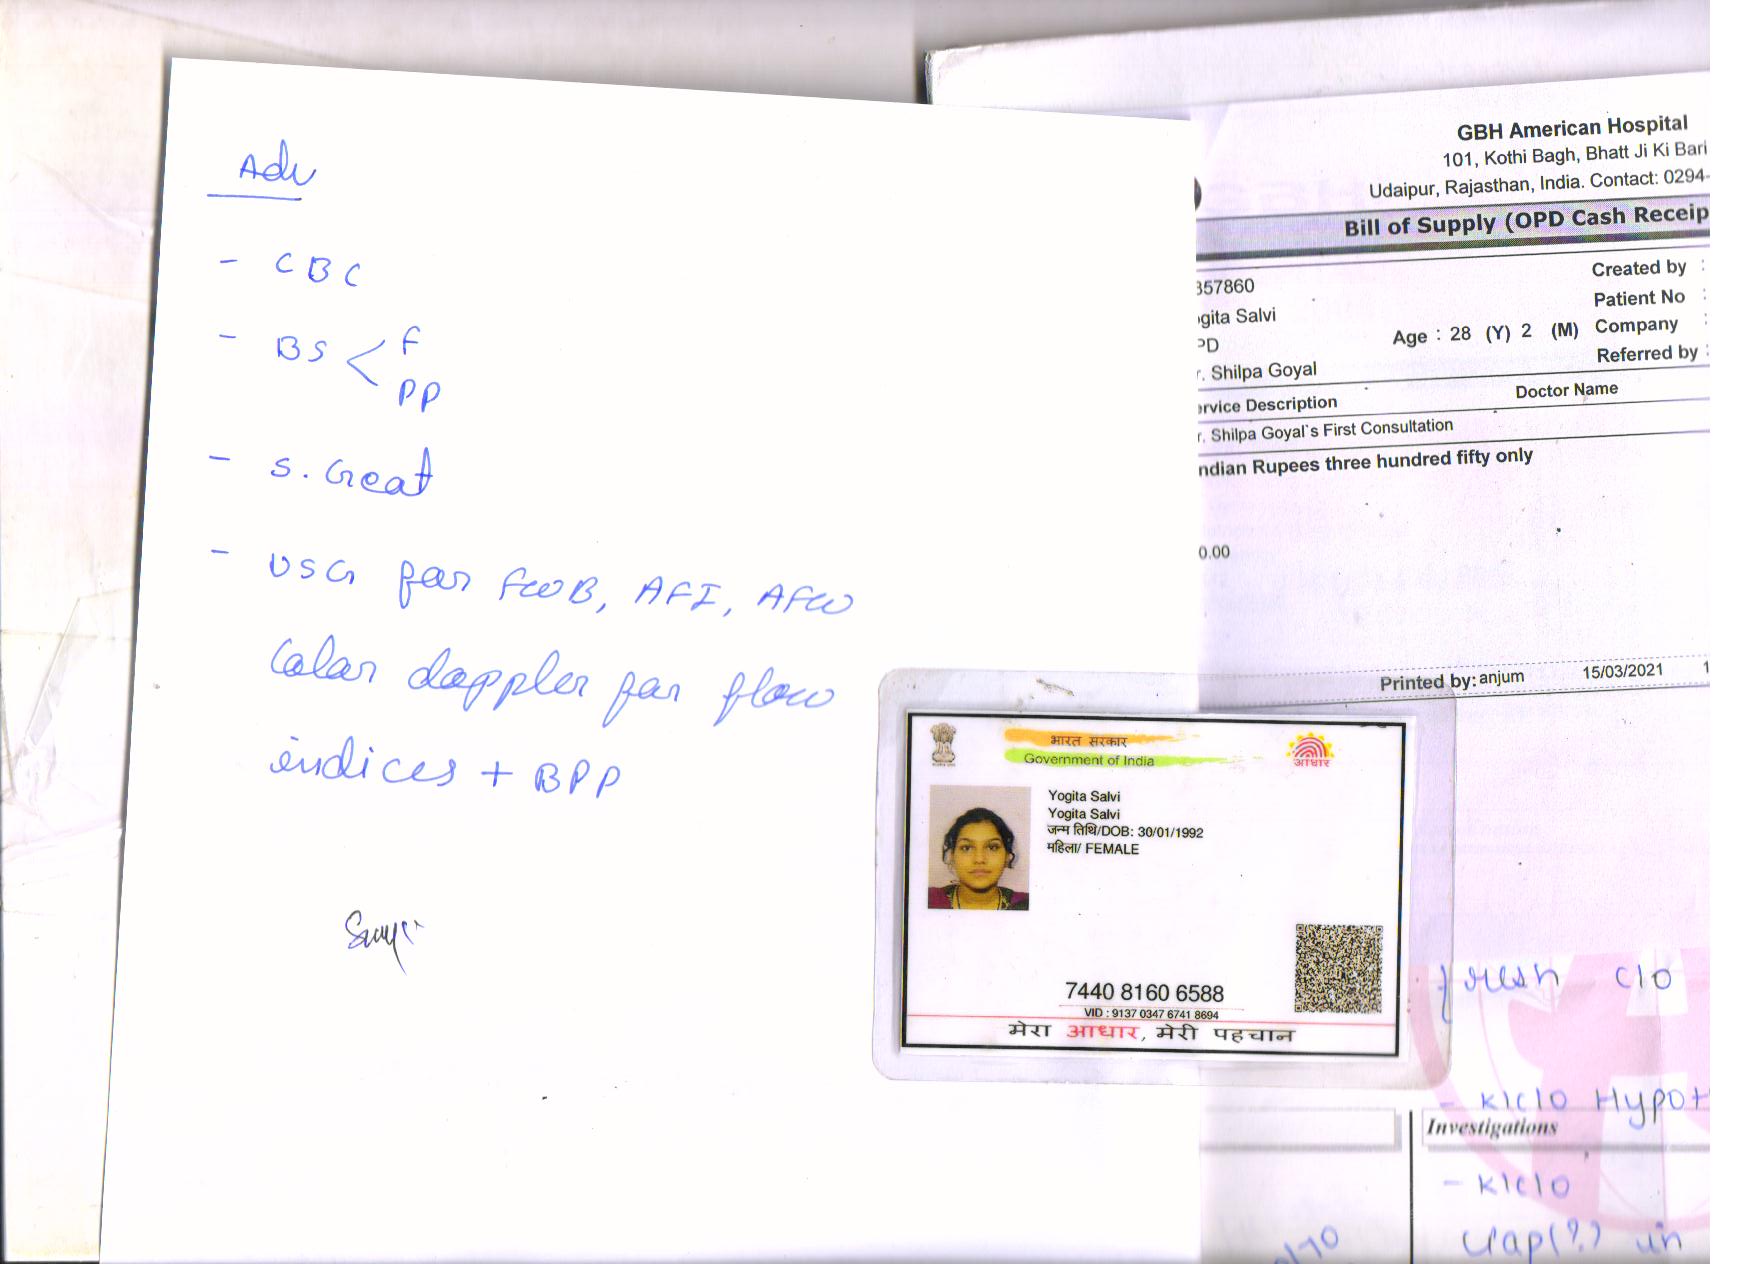 Adv
- CBC
- BS < F
PP
- S. Creat
- USG for FWB, AFI, AFW
Color doppler for flow
indices + BPP
GBH American Hospital
101, Kothi Bagh, Bhatt Ji Ki Bari
Udaipur, Rajasthan, India. Contact: 0294-
Bill of Supply (OPD Cash Receip
357860
Created by :
Patient No :
gita Salvi
Age : 28 (Y) 2 (M) Company :
PD
Referred by :
r. Shilpa Goyal
ervice Description Doctor Name
r. Shilpa Goyal`s First Consultation
ndian Rupees three hundred fifty only
0.00
Printed by: anjum 15/03/2021 1
भारत सरकार
Government of India
आधार
Yogita Salvi
Yogita Salvi
जन्म तिथि/DOB: 30/01/1992
महिला/ FEMALE
7440 8160 6588
VID : 9137 0347 6741 8694
मेरा आधार, मेरी पहचान
fresh c/o
- K/c/o Hypot
Investigations
- K/c/o
(?) in